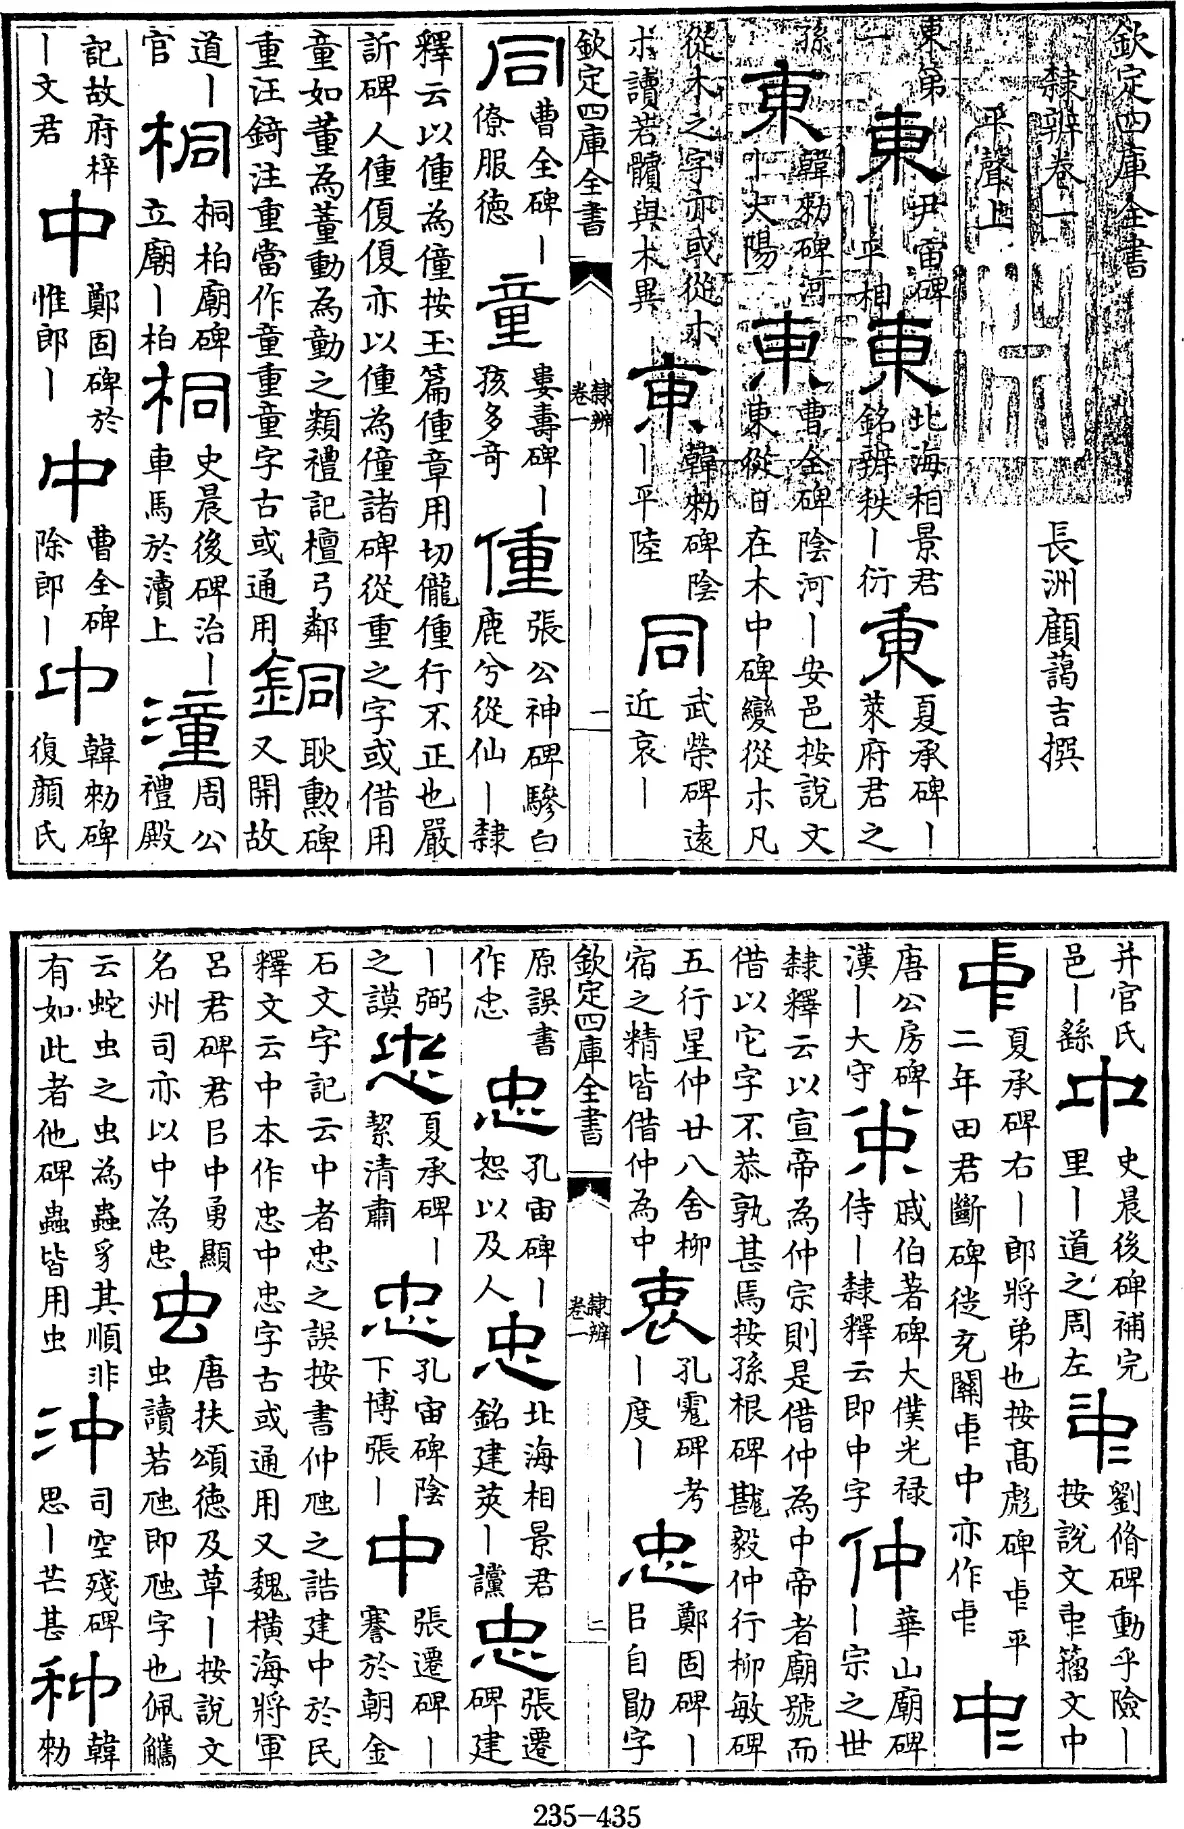 欽定四庫全書
隸辨卷一
長洲顧藹吉撰
平聲上
東第一 東 尹宙碑丨平相 東 北海相景君銘辨秩丨衍 東 夏承碑丨萊府君之
孫 東 韓勑碑河丨大陽 東 曹全碑陰河丨安邑按說文東從日在木中碑變從朩凡
從木之字亦或從朩朩讀若髕與木異 東 韓勑碑陰丨平陸 同 武榮碑遠近哀丨
欽定四庫全書 隸辨 卷一 一
同 曹全碑丨僚服徳 童 婁壽碑丨孩多奇 偅 張公神碑驂白鹿兮從仙丨隸
釋云以偅為僮按玉篇偅章用切儱偅行不正也嚴訢碑人偅亦以偅為僮諸碑從重之字或借用
童如董為蕫動為勭之類禮記檀弓鄰重汪錡注重當作童重童字古或通用 銅 耿勲碑又開故
道丨官 桐 桐柏廟碑立廟丨柏 桐 史晨後碑治丨車馬於瀆上 潼 周公禮殿
記故府梓丨文君 中 鄭固碑於惟郎丨 中 曹全碑除郎丨 中 韓勑碑復顔氏
并官氏邑丨繇 中 史晨後碑補完里丨道之周左 𠁩 劉脩碑動乎險丨按說文𠁩籀文中
𠁩 夏承碑右丨郎將弟也按高彪碑𠁩平二年田君斷碑徙充闗𠁩中亦作𠁩 𠁩
唐公房碑漢丨大守 中 戚伯著碑大僕光禄侍丨隸釋云即中字 仲 華山廟碑丨宗之世
隸釋云以宣帝為仲宗則是借仲為中帝者廟號而借以它字不恭孰甚焉按孫根碑戡毅仲行柳敏碑
五行星仲廿八舍柳宿之精皆借仲為中 衷 孔宙碑考丨度丨 忠 鄭固碑丨㠯自勖字
欽定四庫全書 隸辨 卷一 二
原誤書作忠 忠 孔宙碑丨恕以及人 忠 北海相景君銘建莢丨讜 忠 張遷碑建
丨弼之謨 忠 夏承碑丨絜清肅 忠 孔宙碑陰下博張丨 中 張遷碑丨謇於朝金
石文字記云中者忠之誤按書仲虺之誥建中於民釋文云中本作忠中忠字古或通用又魏横海將軍
呂君碑君㠯中勇顯名州司亦以中為忠 虫 唐扶頌徳及草丨按說文虫讀若虺即虺字也佩觿
云蛇虫之虫為蟲豸其順非有如此者他碑蟲皆用虫 沖 司空殘碑思丨芒甚 种 韓勑
235-435